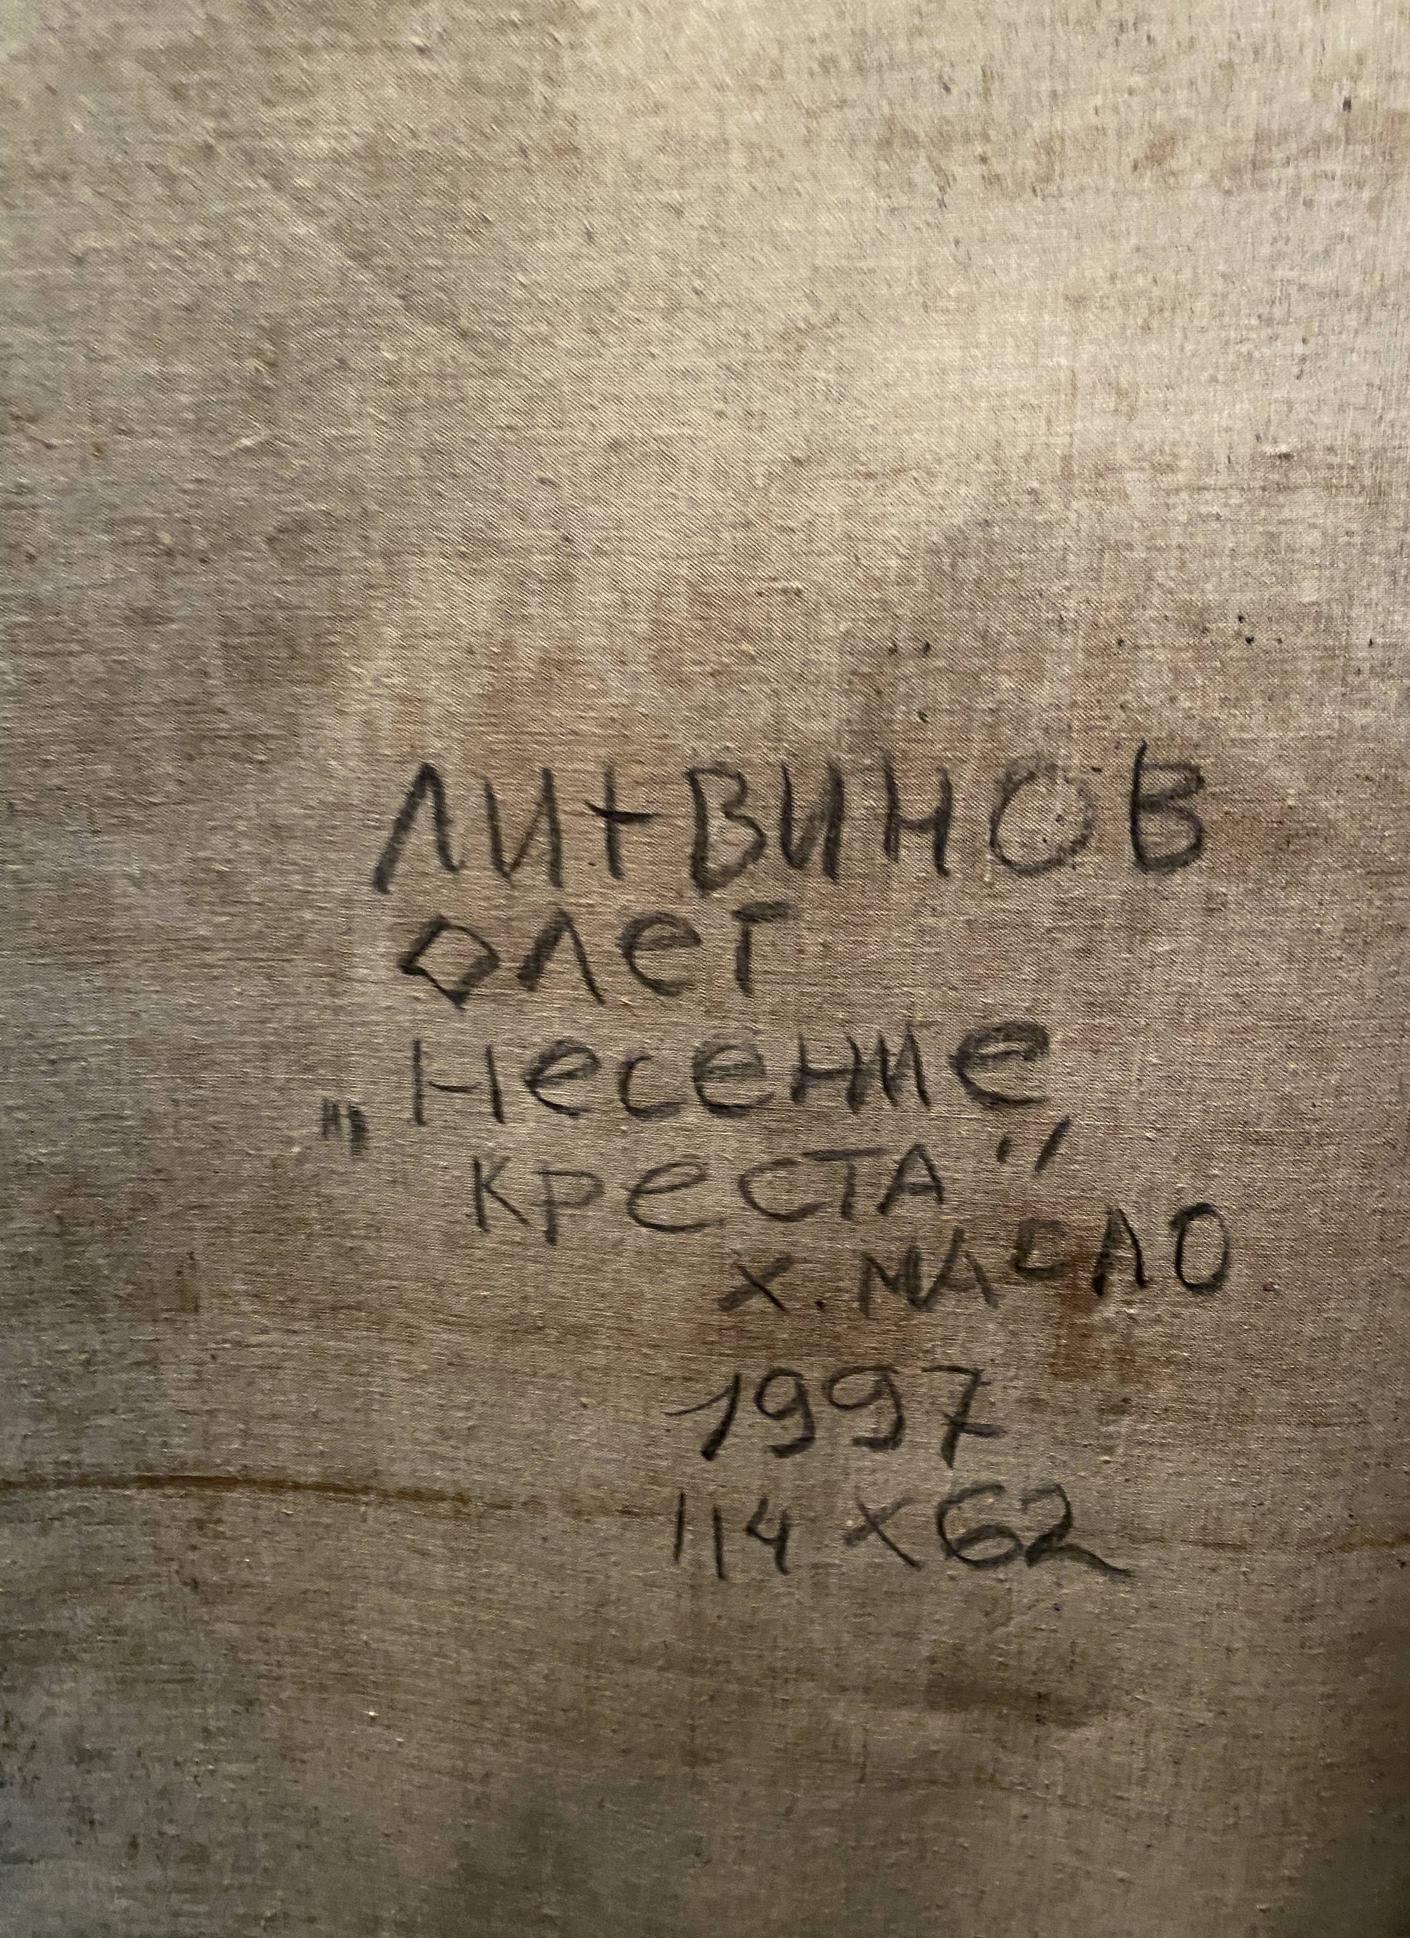 ЛИТВИНОВ
ОЛЕГ
„Несение
КРеСТА"
Х. МАСЛО
1997
114 х 62